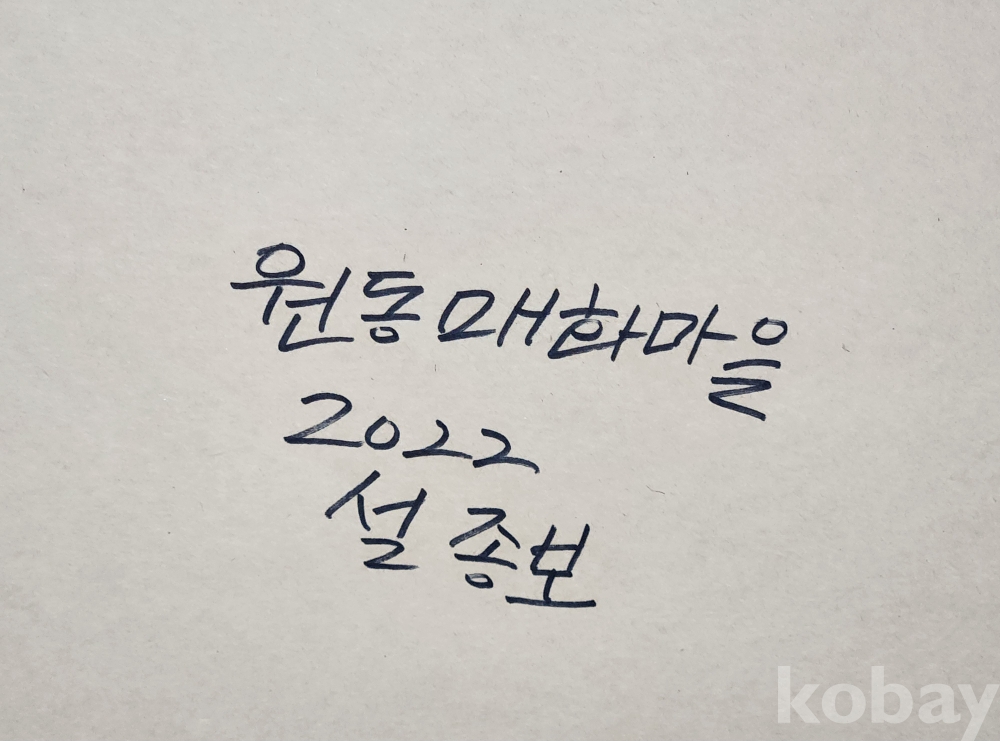 원동매화마을
2022
설종보
kobay